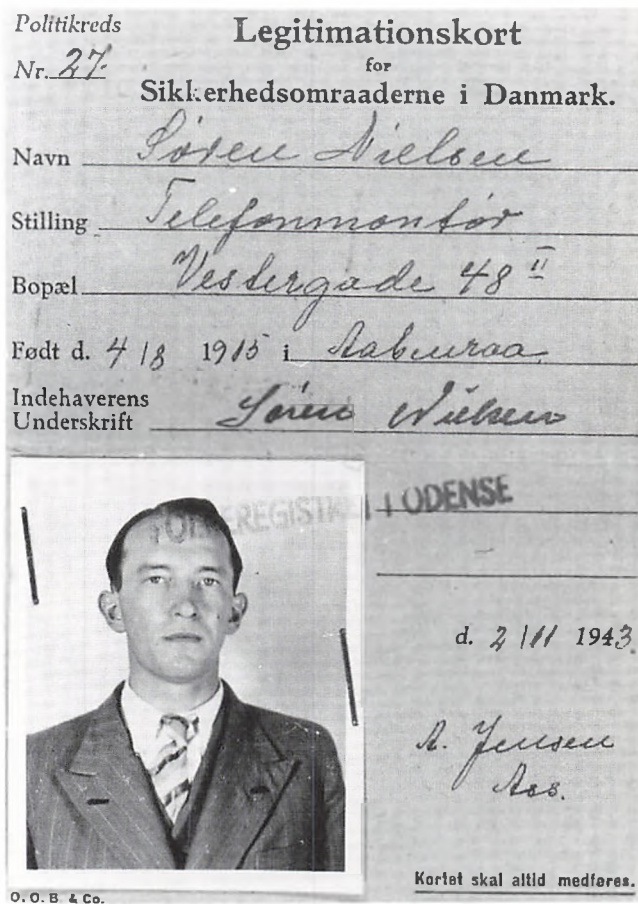 Politikreds
Nr. 27.
Legitimationskort
for
Sikkerhedsomraaderne i Danmark.
Navn Søren Nielsen
Stilling Telefonmontør
Bopæl Vestergade 48 II
Født d. 4/8 1915 i Aabenraa
Indehaverens
Underskrift Søren Nielsen
FOLKEREGISTRET I ODENSE
d. 2/11 1943
A. Jensen
Ass.
Kortet skal altid medføres.
O.O.B. & Co.